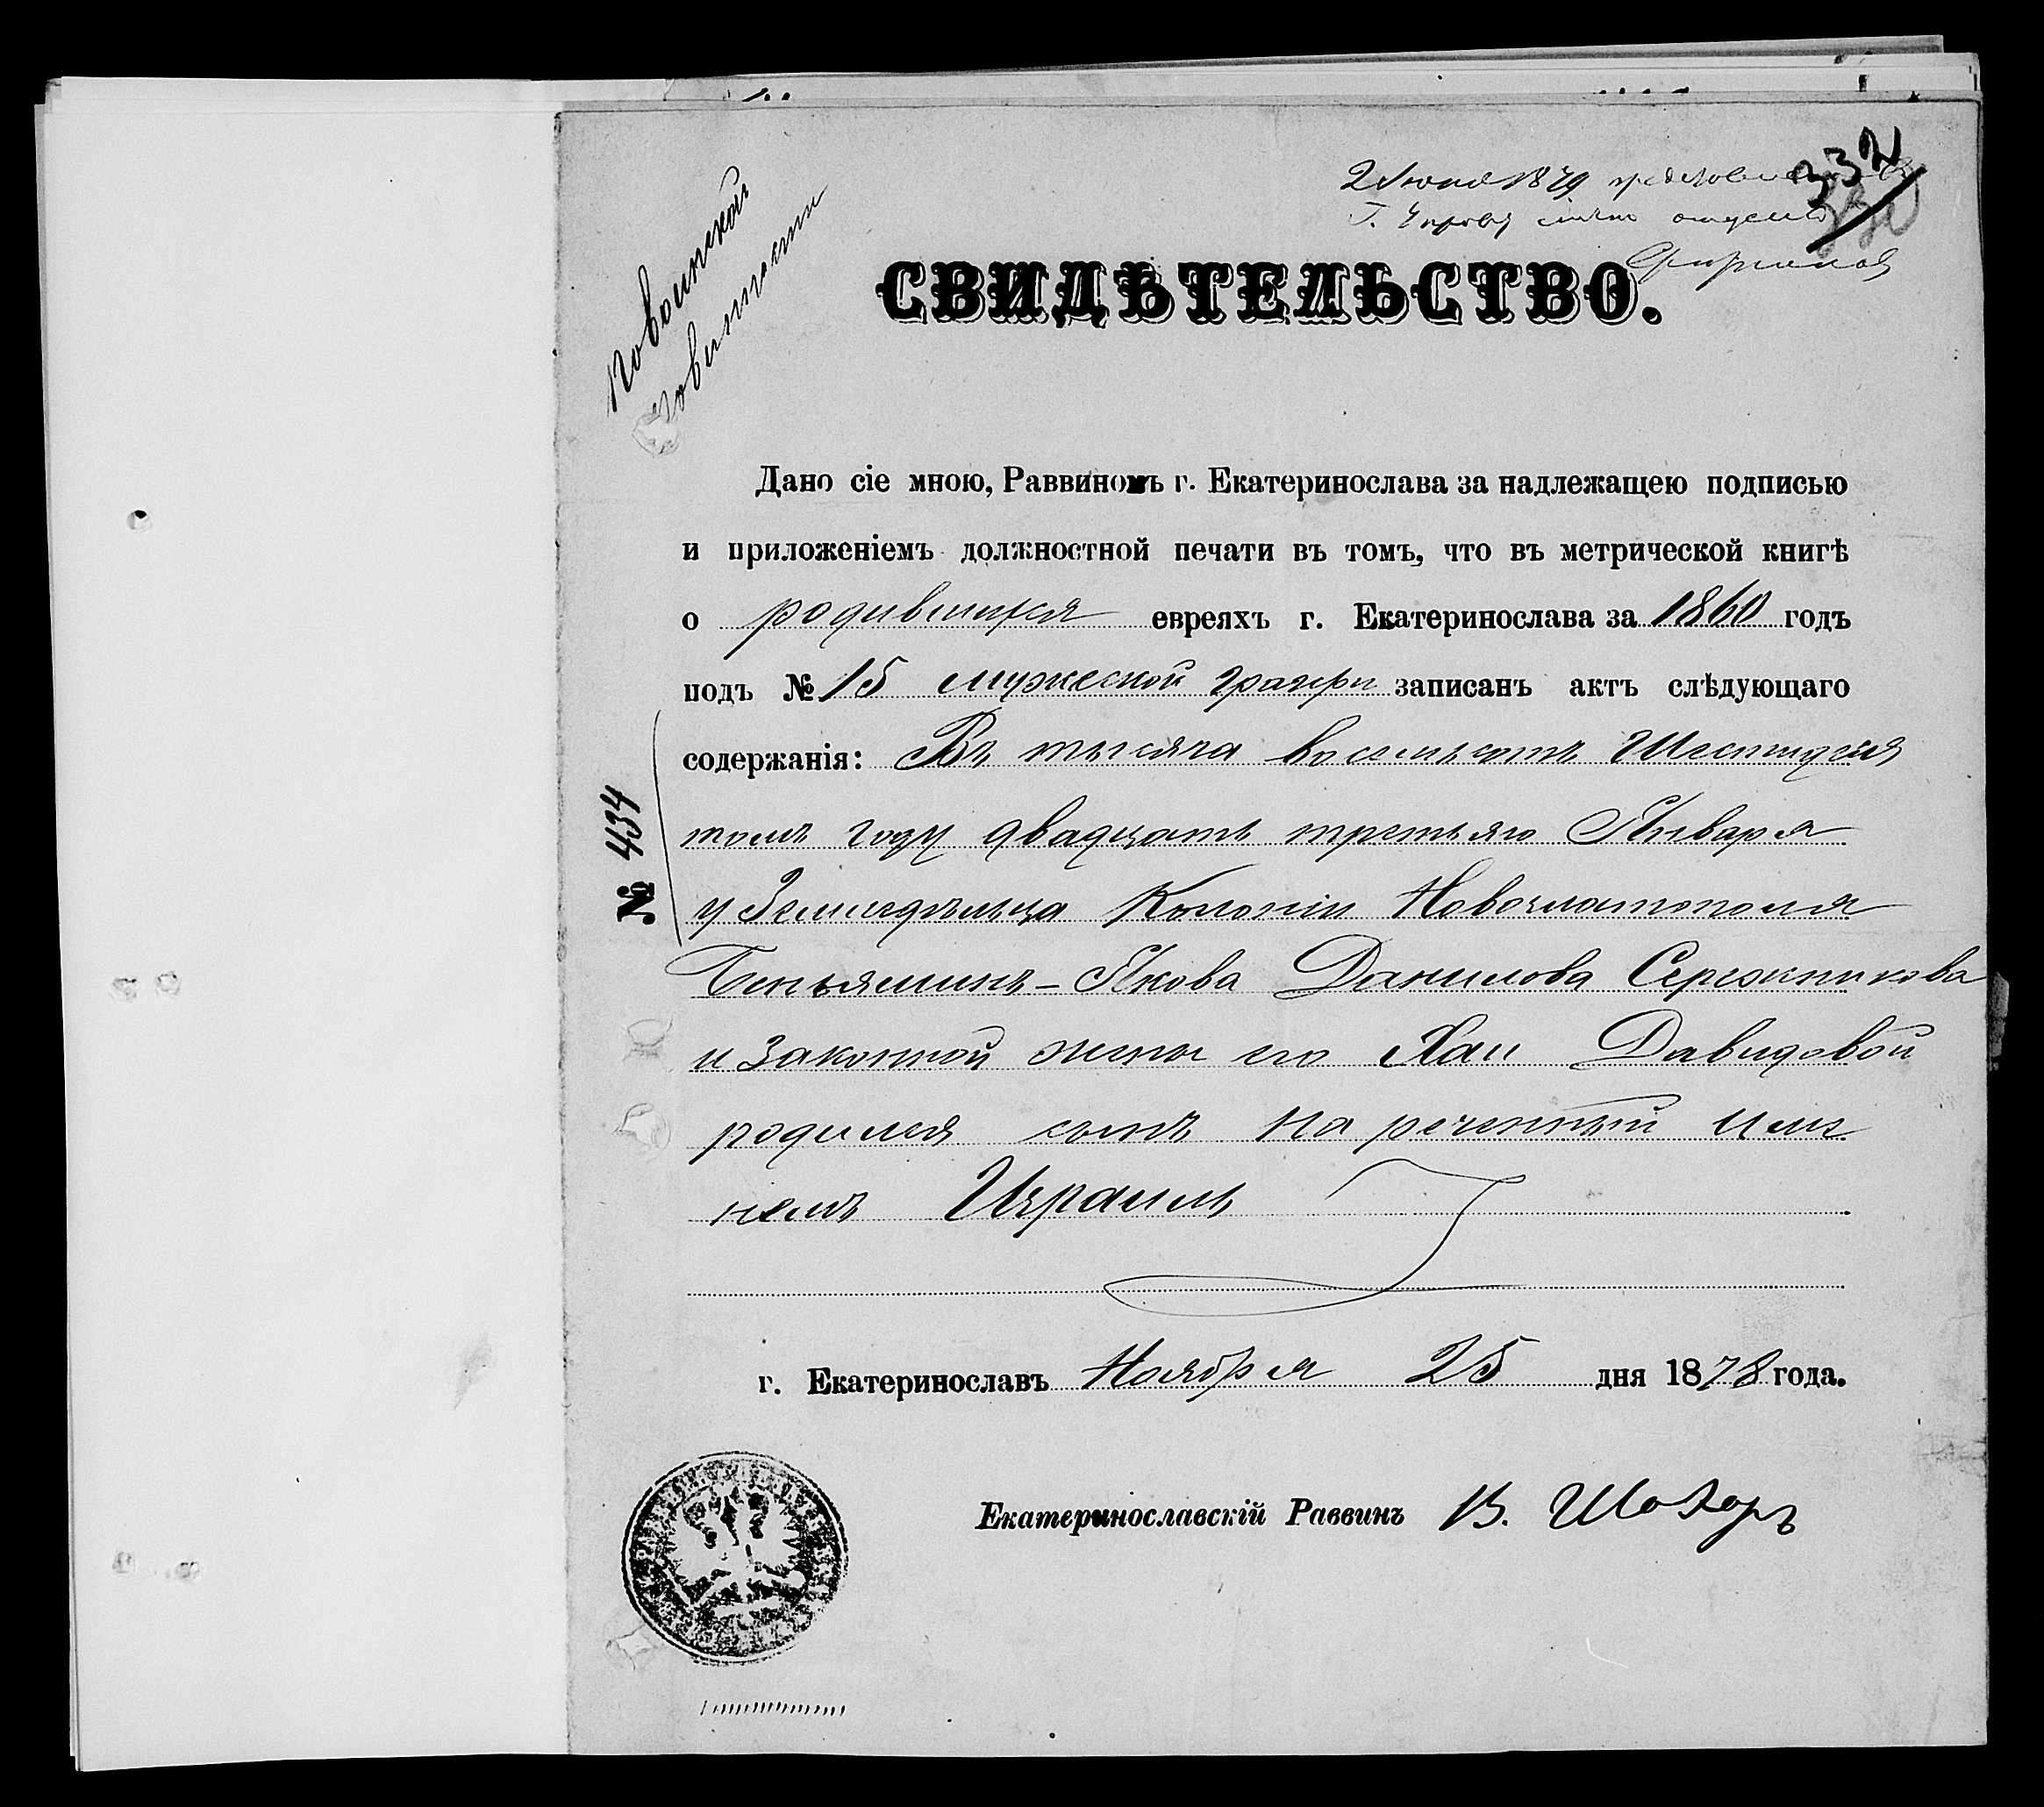 332
2 Июня 1879
По воинской
повинности
СВИДѢТЕЛЬСТВО.
Дано сіе мною, Раввиномъ г. Екатеринослава за надлежащею подписью
и приложеніемъ должностной печати въ томъ, что въ метрической книгѣ
о родившихся евреяхъ г. Екатеринослава за 1860 годъ
подъ № 15 мужеской графы записанъ актъ слѣдующаго
содержанія: Въ тысяча восемьсотъ Шестидеся
томъ году двадцать третьяго Января
у Земледѣльца Колоніи Новозлатополя
Беньяминъ-Якова Данилова Сережникова
и законной жены его Хаи Давидовой
родился сынъ нареченный име
немъ Израиль
№ 434
г. Екатеринославъ Ноября 25 дня 1878 года.
Екатеринославскій Раввинъ В. Шохоръ